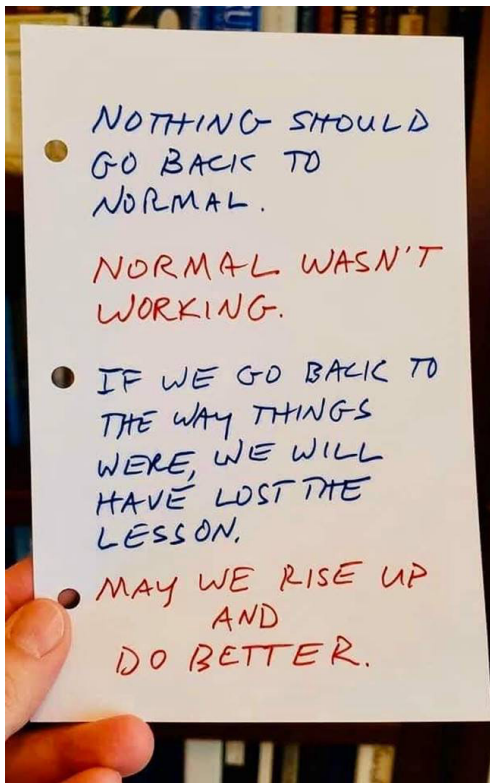 NOTHING SHOULD
GO BACK TO
NORMAL.
NORMAL WASN'T
WORKING.
IF WE GO BACK TO
THE WAY THINGS
WERE, WE WILL
HAVE LOST THE
LESSON.
MAY WE RISE UP
AND
DO BETTER.